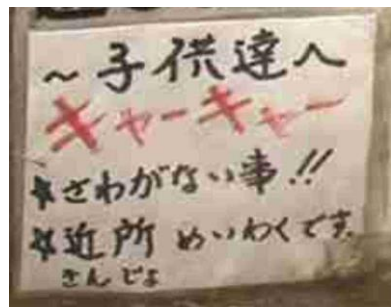 ～子供達へ
キャーキャー
★さわがない事!!
★近所めいわくです。
きんじょ